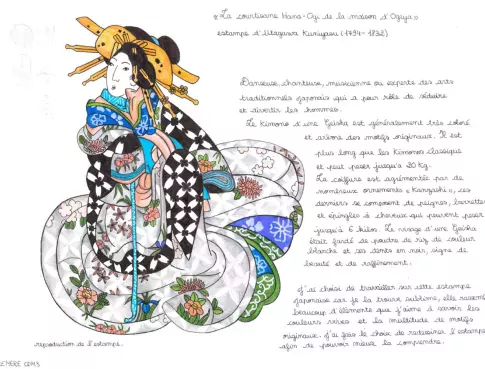 « La courtisane Hana-Ogi de la maison d'Ogiya »
estampe d'Utagawa Kuniyasu (1794-1832)
Danseuse, chanteuse, musicienne ou experte des arts
traditionnels japonais qui a pour rôle de séduire
et divertir les hommes.
Le Kimono d'une Geisha est généralement très coloré
et arbore des motifs originaux. Il est
plus long que les Kimonos classique
et peut peser jusqu'à 20 kg.
La coiffure est agrémentée par de
nombreux ornements « Kanzashi », ces
derniers se composent de peignes, barrettes
et épingles à cheveux qui peuvent peser
jusqu'à 6 kilos. Le visage d'une Geisha
était fardé de poudre de riz de couleur
blanche et ses dents en noir, signe de
beauté et de raffinement.
J'ai choisi de travailler sur cette estampe
japonaise car je la trouve sublime, elle
beaucoup d'éléments que j'aime à savoir les
couleurs vives et la multitude de motifs
originaux. J'ai fais le choix de redessiner l'estampe
afin de pouvoir mieux la comprendre.
reproduction de l'estampe.